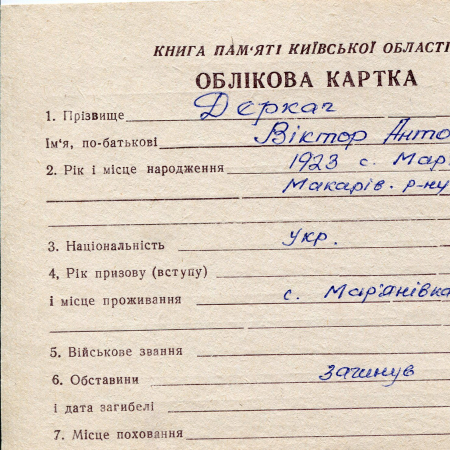 КНИГА ПАМ'ЯТІ КИЇВСЬКОЇ ОБЛАСТІ
ОБЛІКОВА КАРТКА
1. Прізвище Деркач
Ім'я, по-батькові Віктор Анто
2. Рік і місце народження 1923 с. Мар'
Макарів. р-ну
3. Національність укр.
4, Рік призову (вступу)
і місце проживання с. Мар'янівка
5. Військове звання
6. Обставини загинув
і дата загибелі
7. Місце поховання